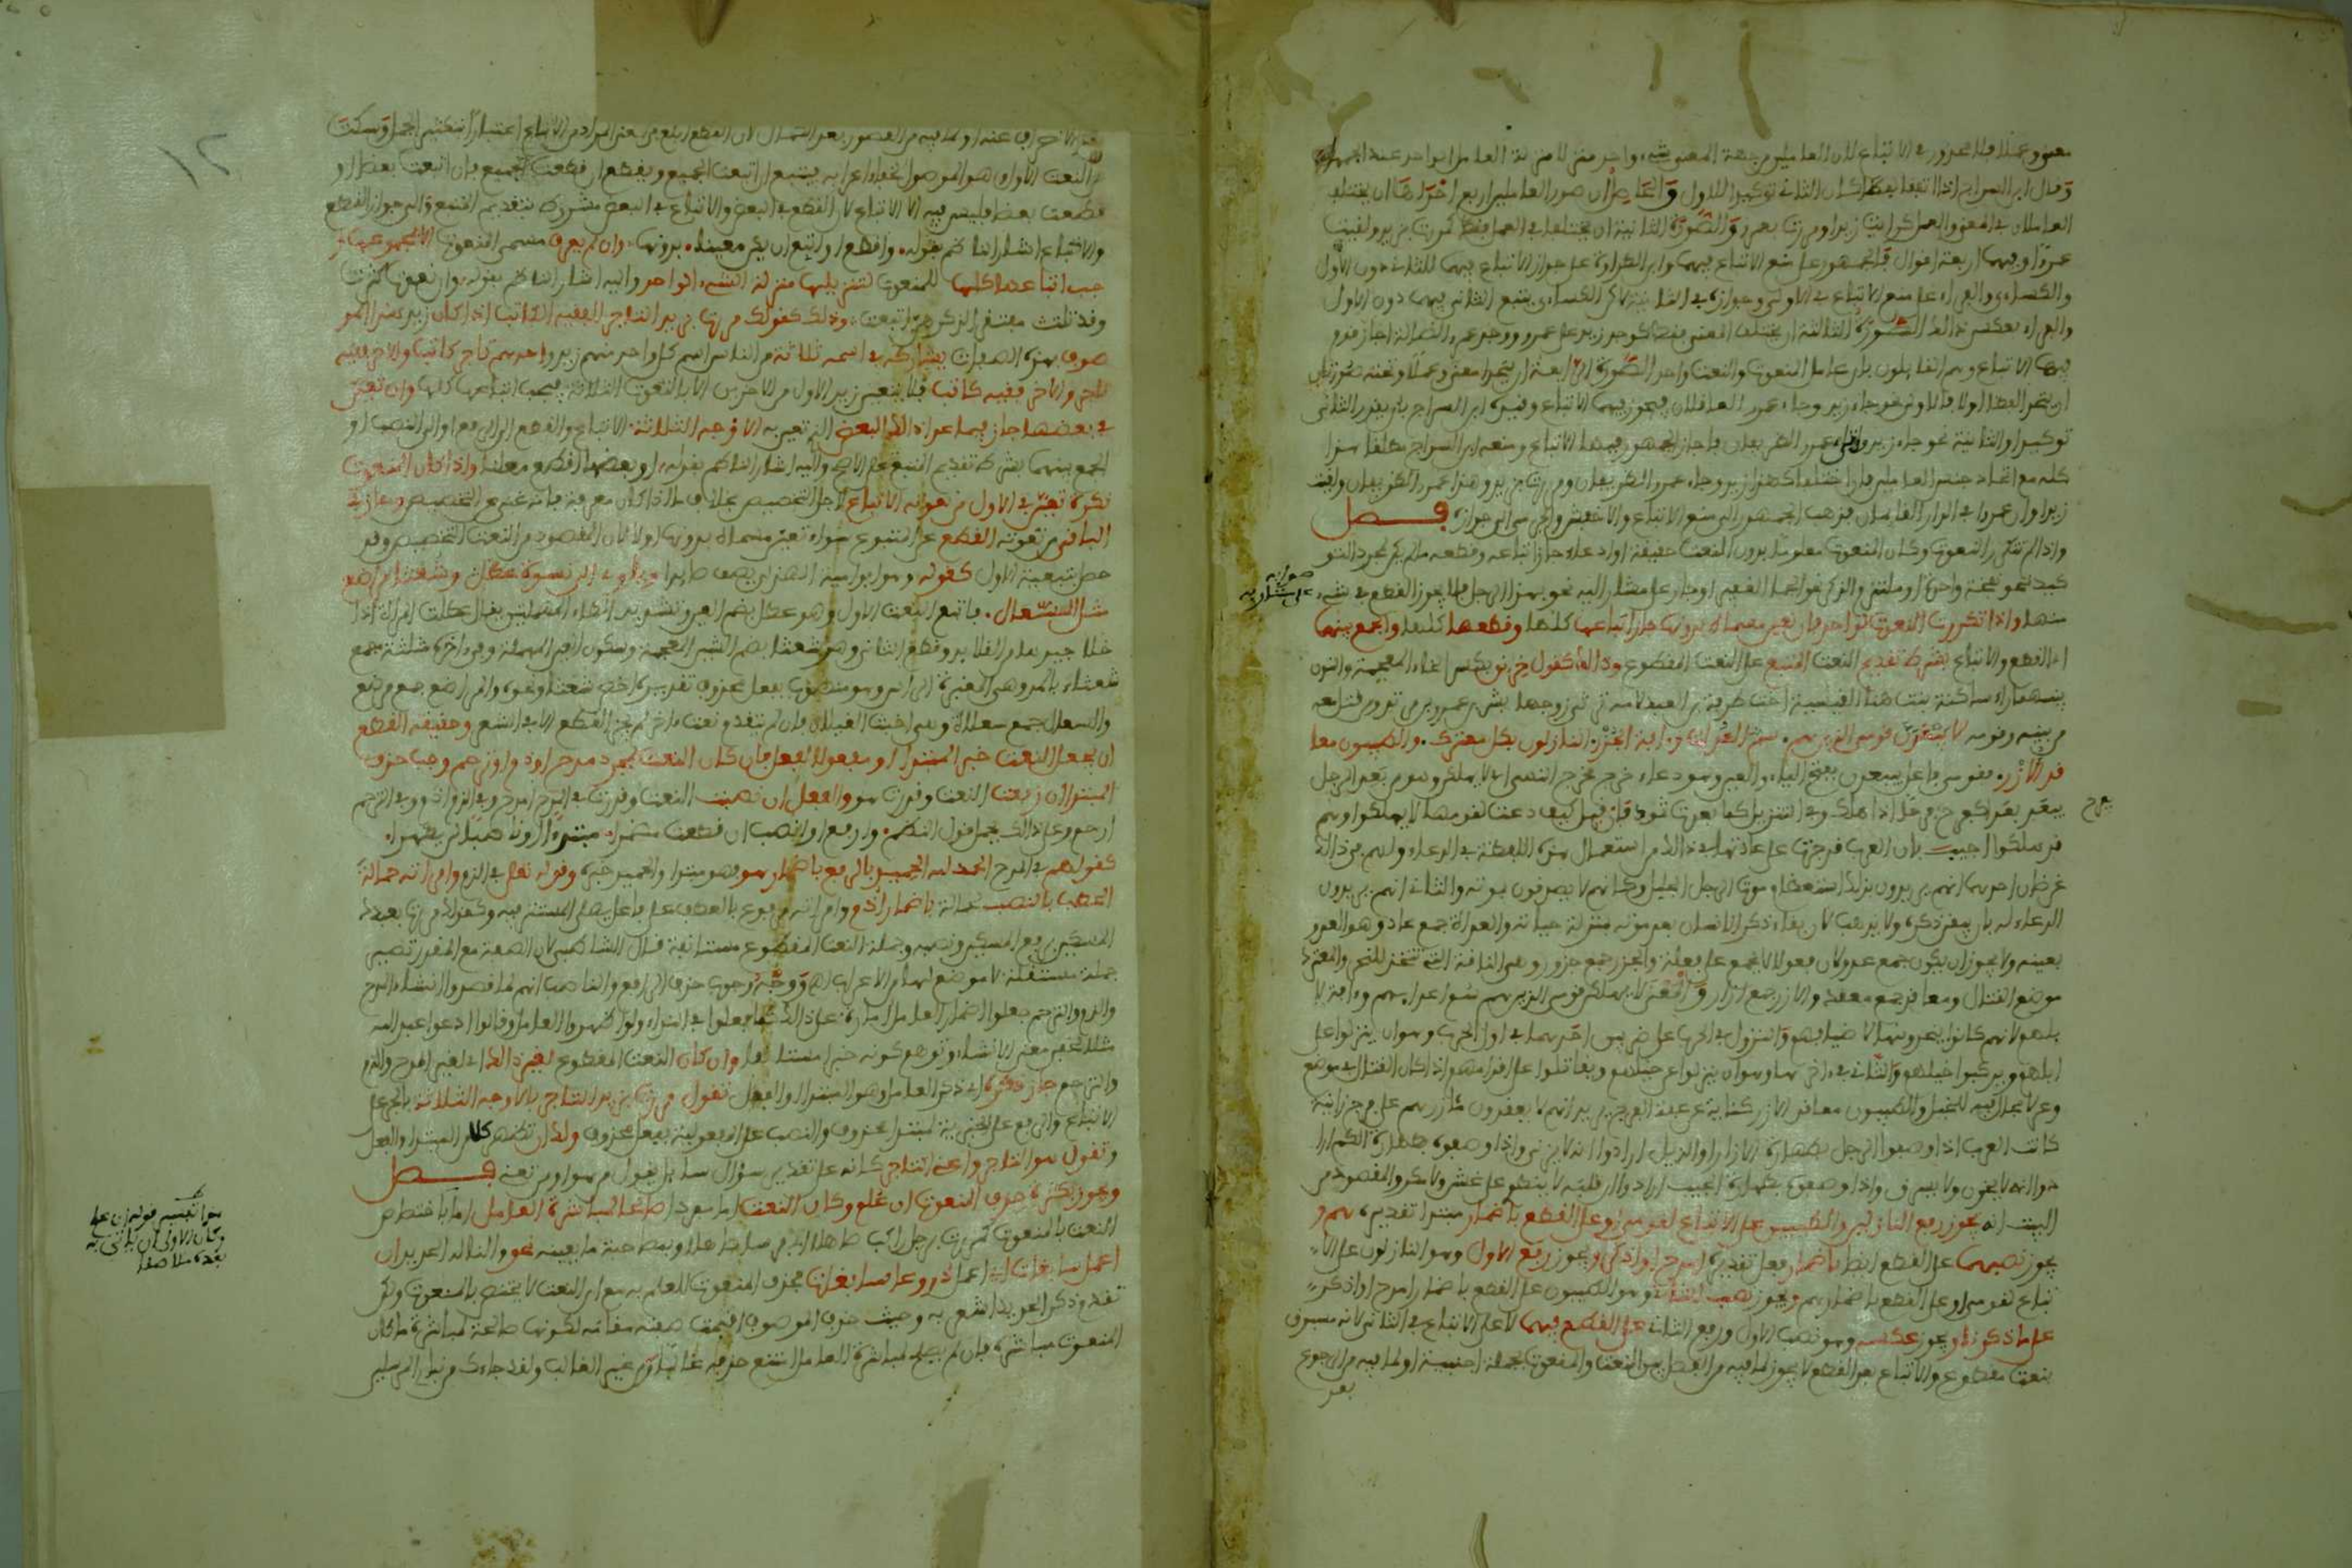 معنى وعملا فلا محذور في الاتباع لان العاملين من جهة المعنى شيء واحد منزلا منزلة العامل الواحد عند الجمهور
وقال ابن السراج اذا اتفقا لفظا كان الثاني توكيدا للاول والحاصل ان صور العاملين اربع احداها ان يختلف
العاملان في المعنى والعمل كرايت زيدا ومررت بعمرو والصورة الثانية ان يختلفا في العمل فقط كمررت بزيد ولقيت
عمرا وفيهما اربعة اقوال فالجمهور على منع الاتباع فيهما وابن الطراوة على جواز الاتباع فيهما للثاني دون الاول
والكسائي والفراء على منع الاتباع في الاولى وجوازه في الثانية لاكن الكسائي يتبع الثاني فيهما دون الاول
والفراء بعكس ذالك الصورة الثالثة ان يختلف المعنى فقط كوجد زيد على عمرو ووجد عمرو الضالة اجاز قوم
فيها الاتباع وهم القايلون بان عامل المنعوت والنعت واحد الصورة الرابعة ان يتحدا معنى وعملا وتحته صورتان
ان يتحد اللفظ اولا فالاولى نحو جاء زيد وجاء عمرو العاقلان فيجوز فيهما الاتباع وقيده ابن السراج بان يقدر الثاني
توكيدا والثانية نحو جاء زيد واتى عمرو الظريفان فاجاز الجمهور فيهما الاتباع ومنعه ابن السراج مطلقا هذا
كله مع اتحاد جنس العاملين فان اختلفا كهذا زيد وجاء عمرو الظريفان ومررت بزيد وهذا عمرو الظريفان ورايت
زيدا وان عمروا في الدار الفاضلان فذهب الجمهور الى منع الاتباع والاخفش والجرمي الى جوازه فصل
واذا لم تتكرر النعوت وكان المنعوت معلوما بدون النعت حقيقة او ادعاء جاز اتباعه وقطعه ما لم يكن لمجرد التو
كيد نحو نفخة واحدة او ملتزم الذكر نحو الجماء الغفير او جار على مشار اليه نحو بهذا الرجل فلا يجوز القطع في شيء
منها واذا تكررت النعوت لواحد فان تعين مسماه بدونها جاز اتباعها كلها وقطعها كلها والجمع بينهما
اي القطع والاتباع بشرط تقديم النعت المتبع على النعت المقطوع وذالك كقول خرنق بكسر الخاء المعجمة والنون
بينهما راء ساكنة بنت هفان القيسية اخت طرفة بن العبد لامه ترثي زوجها بشر بن عمرو بن مرثد ومن قتل معه
من بنيه وقومه لا يبعدن قومي الذين هم سم العداة وءافة الجزر النازلون بكل معترك والطيبون معا
قد الازر فقومي فاعل يبعدن بفتح الياء والعين وهو دعاء خرج مخرج النهي اي لا يهلكن وهو من بعد الرجل
يبعد بعدا كفرح يفرح فرحا اذا هلك وفي التنزيل كما بعدت ثمود فان قيل كيف دعت لقومها لا يهلكوا وهم
قد هلكوا اجيب بان العرب قد جرت على عادتها في ذالك استعمال هذه اللفظة في الدعاء ولهم في ذالك
غرضان احدهما انهم يريدون بذلك استعظام موت الرجل الجليل وكانهم لا يصدقون بموته والثاني انهم يريدون
الدعاء له بان يبقى ذكره ولا يذهب لان بقاء ذكر الانسان بعد موته بمنزلة حياته والعداة جمع عاد وهو العدو
بعينه ولا يجوز ان يكون جمع عدو لان فعولا لا يجمع على فعلة والجزر جمع جزور وهي الناقة التي تتخذ للنحر والمعترك
موضع القتال ومعاقد جمع معقد والازر جمع ازار والمعنى لا يهلكن قومي الذين هم سم اعدائهم وءافة لا
بلهم لانهم كانوا ينحرونها للاضياف والنزول في الحرب على ضربين احدهما في اول الحرب وهو ان ينزلوا عن
ابلهم ويركبوا خيلهم والثاني في ءاخرها وهو ان ينزلوا عن خيلهم ويقاتلوا على اقدامهم اذا كان القتال في موضع
وعر لا مجال فيه للخيل والطيبون معاقد الازر كناية عن عفة الفرج يريد انهم لا يعقدون مئازرهم على فرج زانية
كانت العرب اذا وصفوا الرجل بطهارة الازار او الذيل ارادوا انه لا يزني واذا وصفوه بطهارة الكم ارا
دوا انه لا يخون ولا يسرق واذا وصفوه بطهارة الجيب ارادوا ان قلبه لا ينطوي على غش ولا مكر والمقصود من
البيت انه يجوز رفع النازلين والطيبين على الاتباع لقومي او على القطع باضمار مبتدا تقديره هم و
يجوز نصبهما على القطع ايضا باضمار فعل تقديره امدح او اذكر ويجوز رفع الاول وهو النازلون على الا
تباع لقومي او على القطع باضمار هم ويجوز نصب الثاني وهو الطيبون على القطع باضمار امدح او اذكر
على ما ذكرنا ويجوز عكسه وهو نصب الاول ورفع الثاني على القطع فيهما لا على الاتباع في الثاني لانه مسبوق
بنعت مقطوع والاتباع بعد القطع لا يجوز لما فيه من الفصل بين النعت والمنعوت بجملة اجنبية او لما فيه من الرجوع
بعد
صوابه
على مشار به
يفرح
١٢
بعد الانصراف عنه او لما فيه من القصور بعد الكمال لان القطع ابلغ في المعنى المراد من الاتباع اعتبارا بتكثير الجمل وسكت
عن النعت الاول وهو الموصول لخفاء اعرابه فيتبع ان اتبعت الجميع ويقطع ان قطعت الجميع فان اتبعت بعضا و
قطعت بعضا فليس فيه الا الاتباع لان القطع في البعض والاتباع في البعض مشروط بتقديم المتبع والى جواز القطع
والاتباع اشار الناظم بقوله واقطع او اتبع ان يكن معينا بدونها وان لم يعرف مسمى المنعوت الا بمجموعها و
جب اتباعها كلها للمنعوت لتنزيلها منزلة الشيء الواحد واليه اشار الناظم بقوله وان نعوت كثرت
وقد تلت مفتقرا لذكرهن اتبعت وذلك كقولك مررت بزيد التاجر الفقيه الكاتب اذا كان زيد هذا المو
صوف بهذه الصفات يشاركه في اسمه ثلاثة من الناس اسم كل واحد منهم زيد واحدهم تاجر كاتب والاخر فقيه
تاجر والاخر فقيه كاتب فلا يتعين زيد الاول من الاخرين الا بالنعوت الثلاثة فيجب اتباعها كلها وان تعين
في بعضها جاز فيما عدا ذالك البعض الذي تعين به الاوجه الثلاثة الاتباع والقطع الى الرفع او الى النصب او
الجمع بينهما بشرط تقديم المتبع على الاصح واليه اشار الناظم بقوله او بعضها اقطع معلنا واذا كان المنعوت
نكرة تعين في الاول من نعوته الاتباع لاجل التخصيص بخلاف ما اذا كان معرفة فانه غني عن التخصيص وجاز في
الباقي من نعوته القطع عن المتبوع سواء تعين مسماه بدونها او لا لان المقصود من النعت التخصيص وقد
حصل بتبعية الاول كقوله وهو ابو امية الهذلي يصف صايدا وياوي الى نسوة عطل وشعثا مراضيع
مثل السعال فاتبع النعت الاول وهو عطل بضم العين وتشديد الطاء المهملتين يقال عطلت المراة اذا
خلا جيدها من القلايد وقطع الثاني وهو شعثا بضم الشين المعجمة وسكون العين المهملة وفي ءاخره مثلثة جمع
شعثاء بالمد وهي المغبرة الراس وهو منصوب بفعل محذوف تقديره اخص شعثا ونحوه والمراضع جمع مرضع
والسعال جمع سعلاة وهي اخبث الغيلان فان لم يتقدم نعت ءاخر لم يجز القطع الا في الشعر وحقيقة القطع
ان يجعل النعت خبرا لمبتدا او مفعولا لفعل فان كان النعت لمجرد مدح او ذم او ترحم وجب حذف
المبتدا ان رفعت النعت وقدرت هو والفعل ان نصبت النعت وقدرت في المدح امدح وفي الذم اذم وفي الترحم
ارحم وعلى ذالك يحمل قول الناظم وارفع او انصب ان قطعت مضمرا مبتدءا او ناصبا لن يظهرا
كقولهم في المدح الحمد لله الحميد بالرفع باضمار هو فهو مبتدا والحميد خبره وقوله تعالى في الذم وامراته حمالة
الحطب بالنصب لحمالة باضمار اذم وامراته مرفوع بالعطف على فاعل يصلى المستتر فيه وكقولك مررت بعبدك
المسكين برفع المسكين ونصبه وجملة النعت المقطوع مستانفة قال الشاطبي لان الصفة مع المقدر تصير
جملة مستقلة لا موضع لها من الاعراب اهـ ووجه وجوب حذف الرافع والناصب انهم لما قصدوا انشاء المدح
والذم والترحم جعلوا اضمار العامل امارة على ذالك كما فعلوا في النداء ولو اظهروا العامل وقالوا ادعوا عبد الله
مثلا لخفي معنى الانشاء وتوهم كونه خبرا مستانفا وان كان النعت المقطوع لغير ذالك اي لغير المدح والذم
والترحم جاز ذكره اي ذكر العامل وهو المبتدا او الفعل تقول مررت بزيد التاجر بالاوجه الثلاثة بالجر على
الاتباع والرفع على الخبرية لمبتدا محذوف والنصب على المفعولية بفعل محذوف ولك ان تظهر كلا من المبتدا والفعل
وتقول هو التاجر واعني التاجر كانه على تقدير سؤال سايل يقول من هو او من تعني فصل
ويجوز بكثرة حذف المنعوت ان علم وكان النعت اما مفردا صالحا لمباشرة العامل اما باختصاص
النعت بالمنعوت كمررت برجل راكب صاهلا اي فرسا صاهلا او بمصاحبة ما يعينه نحو والنا له الحديد ان
اعمل سابغات اي اعمل دروعا سابغات فحذف المنعوت للعلم به مع ان النعت لا يختص بالمنعوت ولكن
تقدم ذكر الحديد اشعر به وحيث حذف الموصوف اقيمت صفته مقامه لكونها صالحة لمباشرة ما كان
المنعوت مباشره فان لم يصلح لمباشرة العامل امتنع حذفه غالبا من غير الغالب ولقد جاءك من نبإ المرسلين
هذا تفسير قوله ان علم
وكان الاولى ان ياتي به
بعده ملاصقا